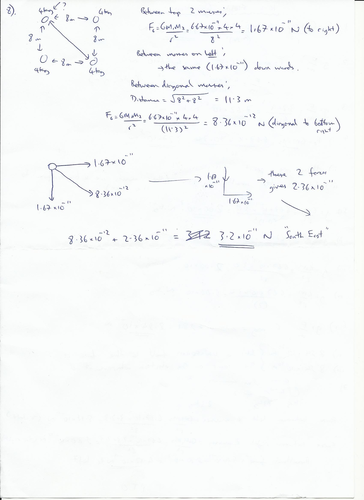 8).
4kg ?
4kg
8m
8m
8m
8m
4kg
4kg
Between top 2 masses;
F = GM₁M₂/r² = 6.67×10⁻¹¹ × 4 × 4 / 8² = 1.67×10⁻¹¹ N (to right)
Between masses on left;
→ the same (1.67×10⁻¹¹) downwards.
Between diagonal masses;
Distance = √8² + 8² = 11.3 m
F = GM₁M₂/r² = 6.67×10⁻¹¹ × 4 × 4 / (11.3)² = 8.36×10⁻¹² N (diagonal to bottom right)
1.67×10⁻¹¹
8.36×10⁻¹²
1.67×10⁻¹¹
1.67×10⁻¹¹
1.67×10⁻¹¹
→ these 2 forces
gives 2.36×10⁻¹¹
8.36×10⁻¹² + 2.36×10⁻¹¹ = 3.2×10⁻¹¹ N "South East"